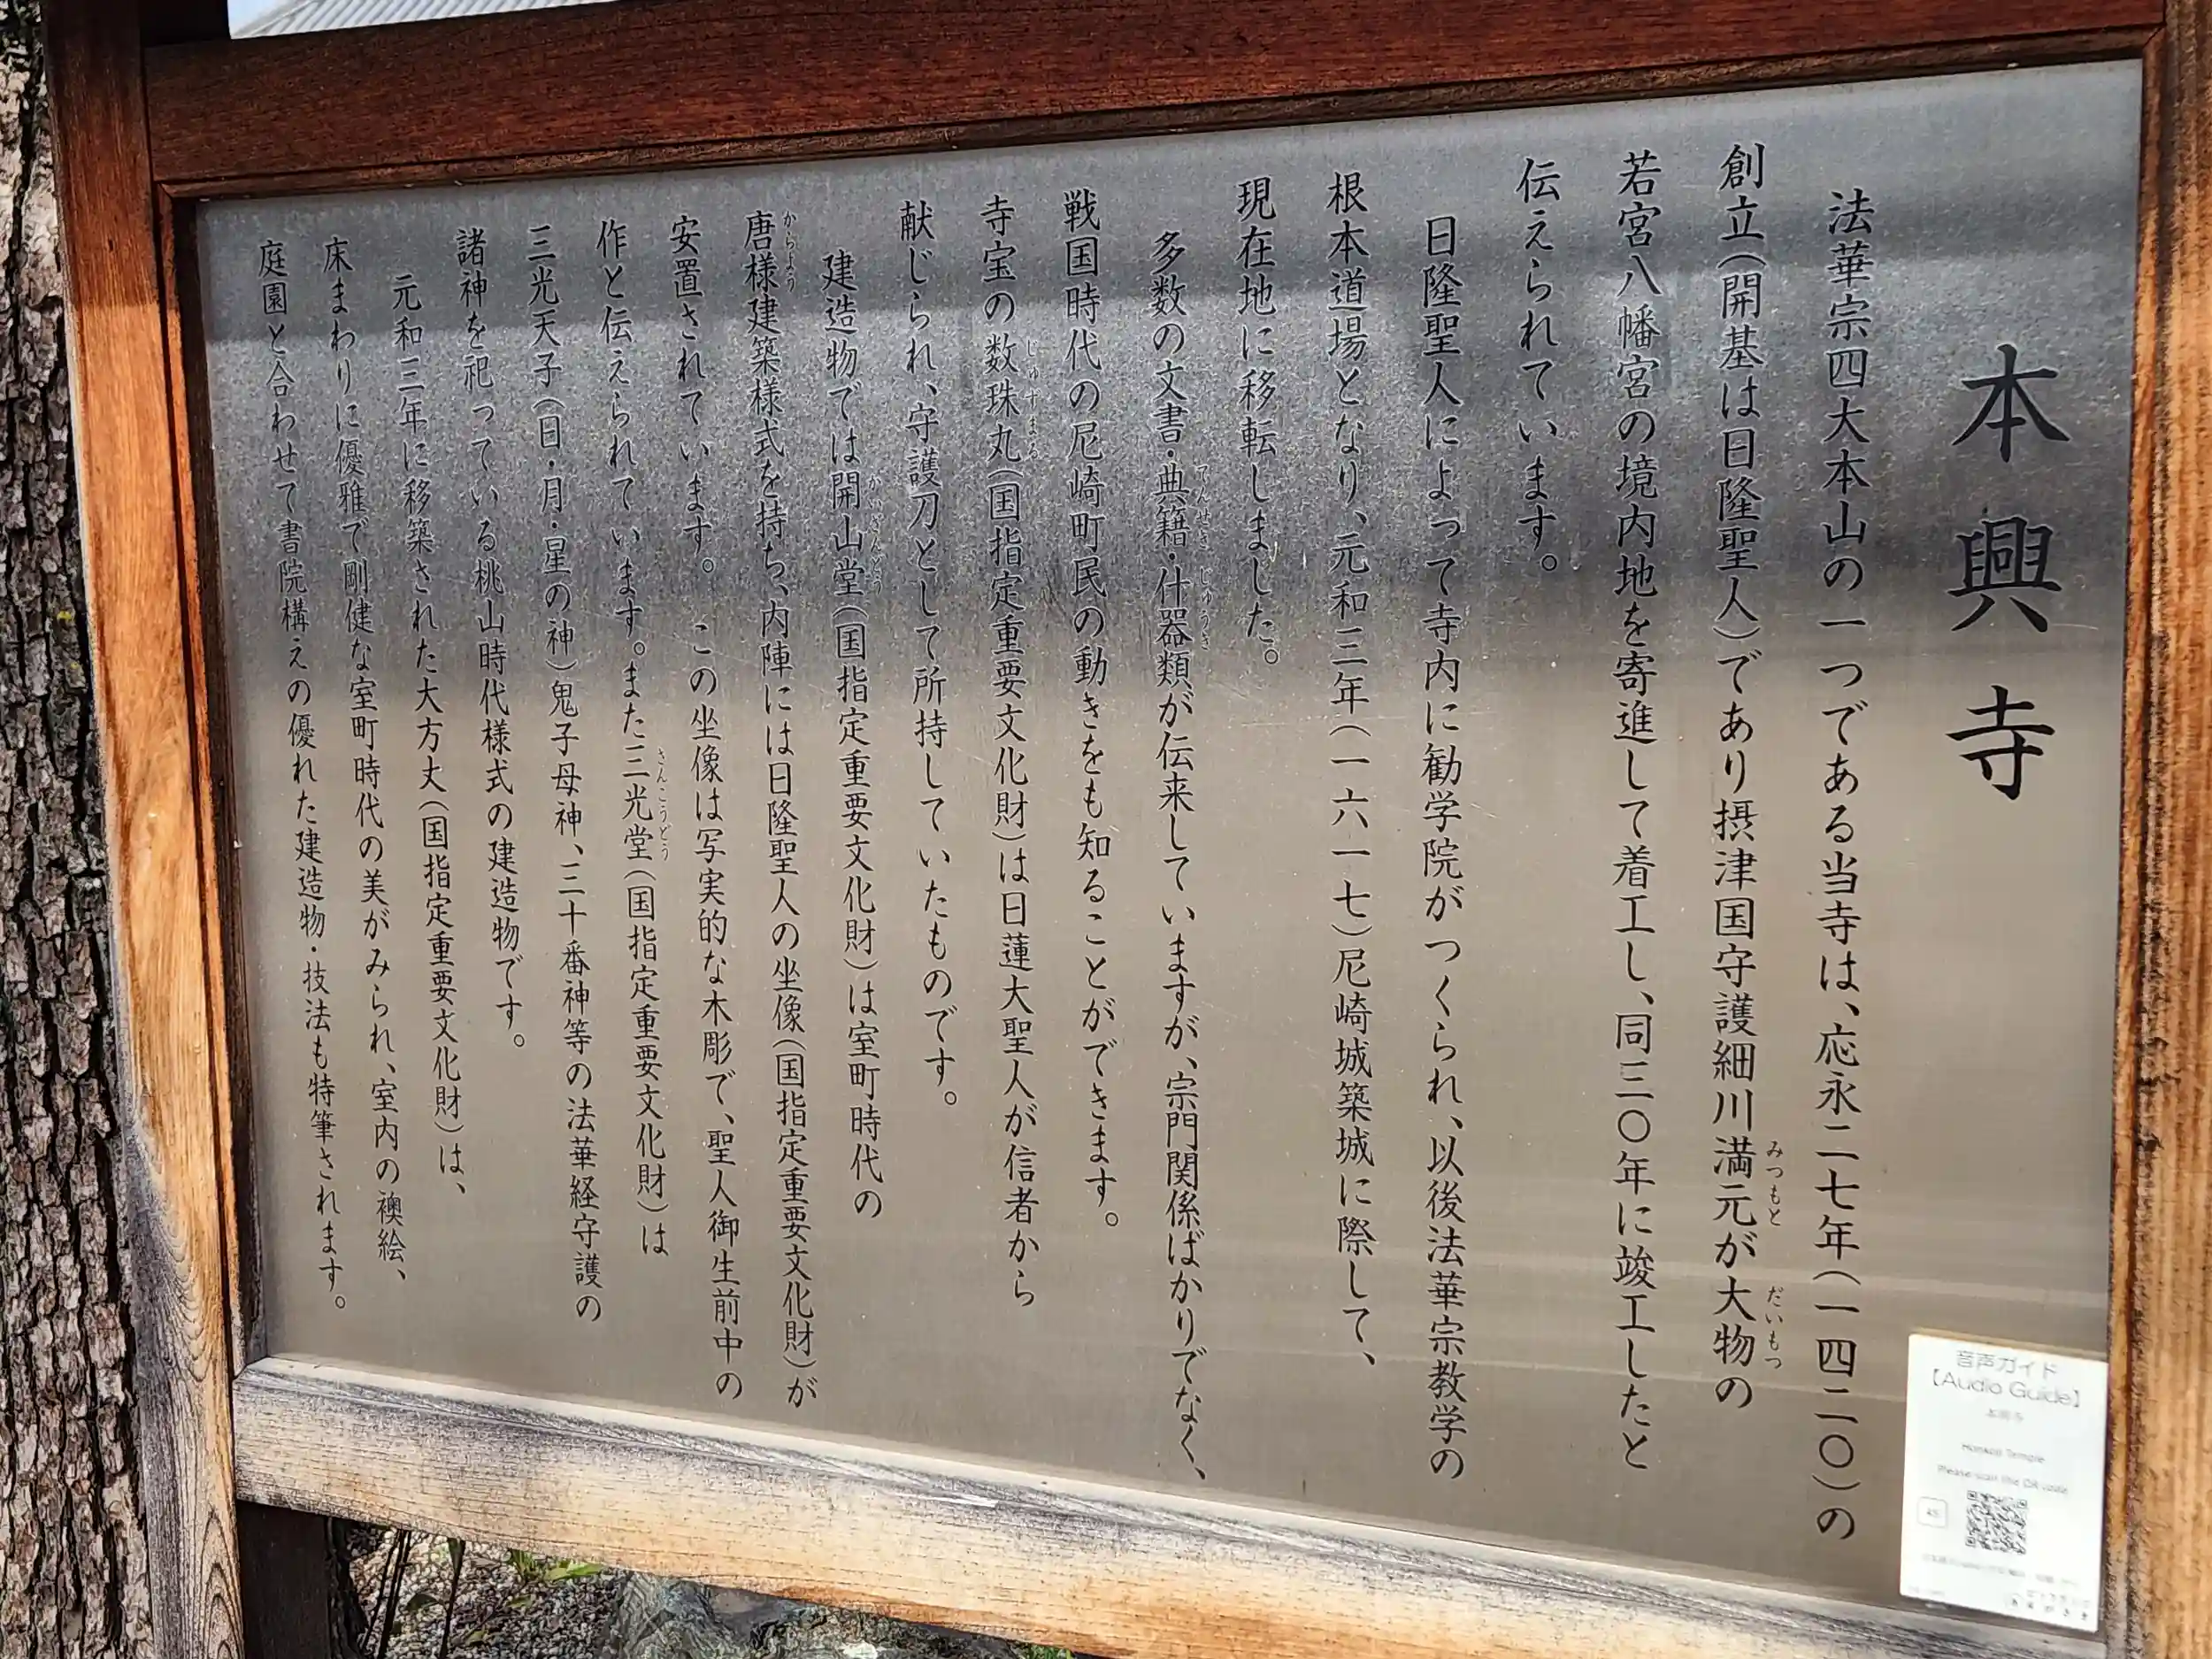 本興寺
法華宗四大本山の一つである当寺は、応永二七年(一四二〇)の
創立(開基は日隆聖人)であり摂津国守護細川満元が大物の
みつもと
だいもつ
若宮八幡宮の境内地を寄進して着工し、同三〇年に竣工したと
伝えられています。
日隆聖人によって寺内に勧学院がつくられ、以後法華宗教学の
根本道場となり、元和三年(一六一七)尼崎城築城に際して、
現在地に移転しました。
多数の文書・典籍・什器類が伝来していますが、宗門関係ばかりでなく、
てんせき
じゅうき
戦国時代の尼崎町民の動きをも知ることができます。
寺宝の数珠丸(国指定重要文化財)は日蓮大聖人が信者から
じゅずまる
献じられ、守護刀として所持していたものです。
建造物では開山堂(国指定重要文化財)は室町時代の
かいさんどう
唐様建築様式を持ち、内陣には日隆聖人の坐像(国指定重要文化財)が
からよう
安置されています。この坐像は写実的な木彫で、聖人御生前中の
作と伝えられています。また三光堂(国指定重要文化財)は
さんこうどう
三光天子(日・月・星の神)鬼子母神、三十番神等の法華経守護の
諸神を祀っている桃山時代様式の建造物です。
元和三年に移築された大方丈(国指定重要文化財)は、
床まわりに優雅で剛健な室町時代の美がみられ、室内の襖絵、
庭園と合わせて書院構えの優れた建造物・技法も特筆されます。
音声ガイド
【Audio Guide】
本興寺
Honkoji Temple
Please scan the QR code